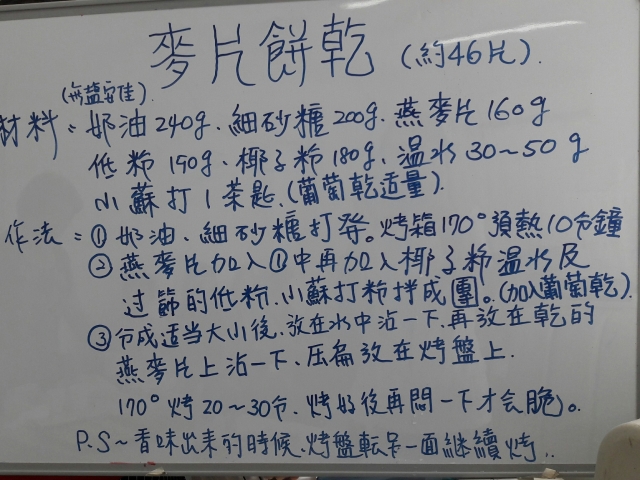 麥片餅乾 (約46片).
(無鹽安佳).
材料：奶油240g、細砂糖200g、燕麥片160g
低粉190g、椰子粉180g、溫水30～50g
小蘇打1茶匙、(葡萄乾適量).
作法：①奶油、細砂糖打發。烤箱170°預熱10分鐘
②燕麥片加入①中再加入椰子粉溫水及
过篩的低粉、小蘇打粉拌成團。(加入葡萄乾).
③分成适当大小後、放在水中沾一下、再放在乾的
燕麥片上沾一下、压扁放在烤盤上.
170°烤20～30分、烤好後再悶一下才会脆。
P.S～香味出來的時候、烤盤転另一面継續烤..